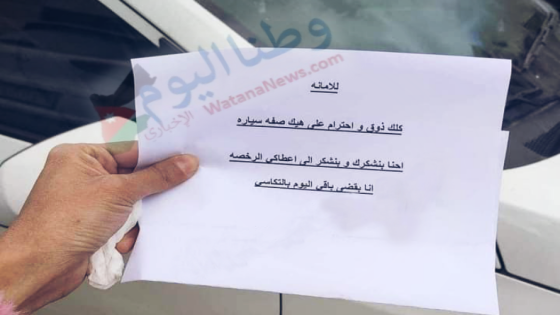 وطنا اليوم
الإخباري
WatanaNews.com
للامانه
كلك ذوق و احترام على هيك صفه سياره
احنا بنشكرك و بنشكر إلى اعطاكي الرخصه
انا بقضي باقي اليوم بالتكاسي